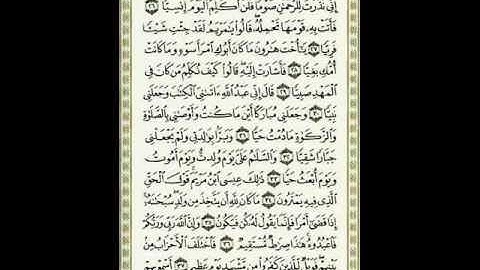 إِنِّي نَذَرْتُ لِلرَّحْمَٰنِ صَوْمًا فَلَنْ أُكَلِّمَ ٱلْيَوْمَ إِنسِيًّا ٢٦
فَأَتَتْ بِهِۦ قَوْمَهَا تَحْمِلُهُۥ قَالُوا۟ يَٰمَرْيَمُ لَقَدْ جِئْتِ شَيْـًٔا
فَرِيًّا ٢٧ يَٰٓأُخْتَ هَٰرُونَ مَا كَانَ أَبُوكِ ٱمْرَأَ سَوْءٍ وَمَا كَانَتْ
أُمُّكِ بَغِيًّا ٢٨ فَأَشَارَتْ إِلَيْهِ قَالُوا۟ كَيْفَ نُكَلِّمُ مَن كَانَ فِي
ٱلْمَهْدِ صَبِيًّا ٢٩ قَالَ إِنِّي عَبْدُ ٱللَّهِ ءَاتَىٰنِيَ ٱلْكِتَٰبَ وَجَعَلَنِي
نَبِيًّا ٣٠ وَجَعَلَنِي مُبَارَكًا أَيْنَ مَا كُنتُ وَأَوْصَٰنِي بِٱلصَّلَوٰةِ
وَٱلزَّكَوٰةِ مَا دُمْتُ حَيًّا ٣١ وَبَرًّۢا بِوَٰلِدَتِي وَلَمْ يَجْعَلْنِي
جَبَّارًا شَقِيًّا ٣٢ وَٱلسَّلَٰمُ عَلَيَّ يَوْمَ وُلِدتُّ وَيَوْمَ أَمُوتُ
وَيَوْمَ أُبْعَثُ حَيًّا ٣٣ ذَٰلِكَ عِيسَى ٱبْنُ مَرْيَمَ قَوْلَ ٱلْحَقِّ
ٱلَّذِي فِيهِ يَمْتَرُونَ ٣٤ مَا كَانَ لِلَّهِ أَن يَتَّخِذَ مِن وَلَدٍ سُبْحَٰنَهُۥٓ
إِذَا قَضَىٰٓ أَمْرًا فَإِنَّمَا يَقُولُ لَهُۥ كُن فَيَكُونُ ٣٥ وَإِنَّ ٱللَّهَ رَبِّي وَرَبُّكُمْ
فَٱعْبُدُوهُ هَٰذَا صِرَٰطٌ مُّسْتَقِيمٌ ٣٦ فَٱخْتَلَفَ ٱلْأَحْزَابُ مِنۢ
بَيْنِهِمْ فَوَيْلٌ لِّلَّذِينَ كَفَرُوا۟ مِن مَّشْهَدِ يَوْمٍ عَظِيمٍ ٣٧ أَسْمِعْ بِهِمْ